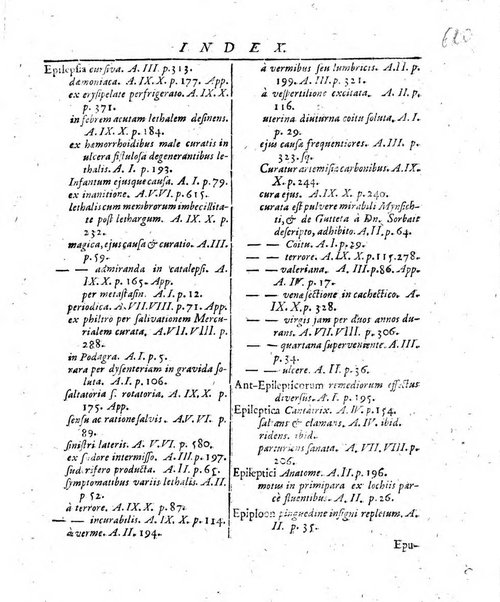 620
INDEX.
Epilepsia cursiva. A. III. p. 313.
dæmoniaca. A. IX. X. p. 177. App.
ex erysipelate perfrigerato. A. IX. X.
p. 371.
in febrem acutam lethalem desinens.
A. IX. X. p. 184.
ex hæmorrhoidibus male curatis in
ulcera fistulosa degenerantibus le-
thalis. A. I. p. 193.
Infantum ejusque causa. A. I. p. 79.
ex inanitione. A. V. VI. p. 615.
lethalis cum membrorum imbecillita-
te post lethargum. A. IX. X. p.
232.
magica, ejus causa & curatio. A. III.
p. 59.
— — admiranda in catalepsi. A.
IX. X. p. 165. App.
per metastasin. A. I. p. 12.
periodica. A. VII. VIII. p. 71. App.
ex philtro per salivationem Mercu-
rialem curata. A. VII. VIII. p.
288.
in Podagra. A. I. p. 5.
rara per dysenteriam in gravida so-
luta. A. I. p. 106.
saltatoria s. rotatoria. A. IX. X. p.
175. App.
sensu ac ratione salvis. A. V. VI. p.
89.
sinistri lateris. A. V. VI. p. 580.
ex sudore intermisso. A. III. p. 197.
sudorifero producta. A. II. p. 65.
symptomatibus variis lethalis. A. II.
p. 52.
à terrore. A. IX. X. p. 87.
— — incurabilis. A. IX. X. p. 114.
à verme. A. II. p. 194.
à vermibus seu lumbricis. A. II. p.
199. A. III. p. 321.
à vespertilione excitata. A. II. p.
116.
uterina diuturna coitu soluta. A. I.
p. 29.
ejus causæ frequentiores. A. III. p.
323. sq.
Curatur artemisiæ carbonibus. A. IX.
X. p. 244.
cura ejus. A. IX. X. p. 240.
curata est pulvere mirabili Mynsich-
ti, & de Gutteta à Dn. Sorbait
descripto, adhibito. A. II. p. 64.
— — Coitu. A. I. p. 29.
— — terrore. A. IX. X. p. 115. 278.
— — valeriana. A. III. p. 86. App.
A. IV. p. 17.
— — venæ sectione in cachectico. A.
IX. X. p. 308.
— — virgis jam per duos annos du-
rans. A. VII. VIII. p. 306.
— — quartana superveniente. A. III.
p. 34.
— — ulcere. A. II. p. 36.
Ant-Epilepticorum remediorum effectus
diversus. A. I. p. 195.
Epileptica Cantatrix. A. IV. p. 154.
saltans & clamans. A. IV. ibid.
ridens. ibid.
parturiens sanata. A. VII. VIII. p.
206.
Epileptici Anatome. A. II. p. 196.
motus in primipara ex lochiis par-
ce fluentibus. A. II. p. 26.
Epiploon pinguedine insigni repletum. A.
II. p. 35.
Epu-